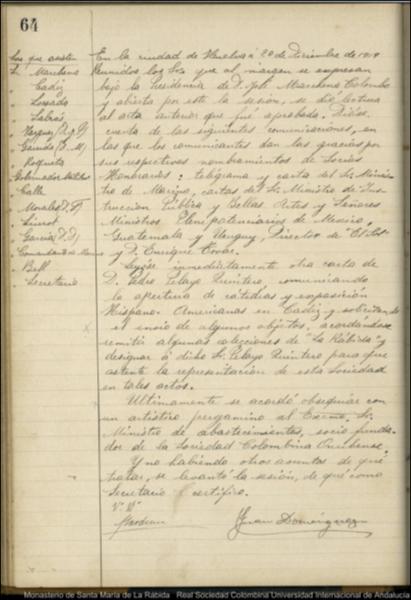 64
Los que asisten
Sr. Marchena
" Cádiz
" Losada
" Vazquez
" Garrido (D. M)
" Roqueta
Gobernador
" Calle
" Morales
" García
Comandante de Marina
" Bell
" Secretario
En la ciudad de Huelva á 20 de Diciembre de
Reunidos los Sres que al margen se expresan
bajo la Presidencia de D. Marchena Colombo
y abierta por este la sesión, se dió lectura
al acta anterior que fué aprobada. Dióse
cuenta de las siguientes comunicaciones, en
las que los comunicantes dan las gracias por
sus respectivos nombramientos de Socios
Honorarios: telegrama y carta del Sr. Minis-
tro de Marina, cartas del Sr. Ministro de Ins-
trucción Pública y Bellas Artes y Señores
Ministros Plenipotenciarios de Mexico,
Guatemala y Uruguay, Director de "El Sol"
y D. Enrique
Leyóse inmediatamente otra carta de
D. Pedro Pelayo Quintero, comunicando
la apertura de cátedras y exposición
Hispano Americanas en Cadiz y solicitando
el envío de algunos objetos, acordándose
remitir algunas colecciones de "La Rábida" y
designar á dicho Sr. Pelayo Quintero para que
ostente la representación de esta Sociedad
en tales actos.
Ultimamente se acordó obsequiar con
un artístico pergamino al Excmo. Sr.
Ministro de abastecimientos, socio funda-
dor de la Sociedad Colombina Onubense.
Y no habiendo otros asuntos de que
tratar, se levantó la sesión, de que como
Secretario certifico.
V.º B.º
Marchena
Juan Dominguez
Monasterio de Santa María de La Rábida Real Sociedad Colombina Universidad Internacional de Andalucía